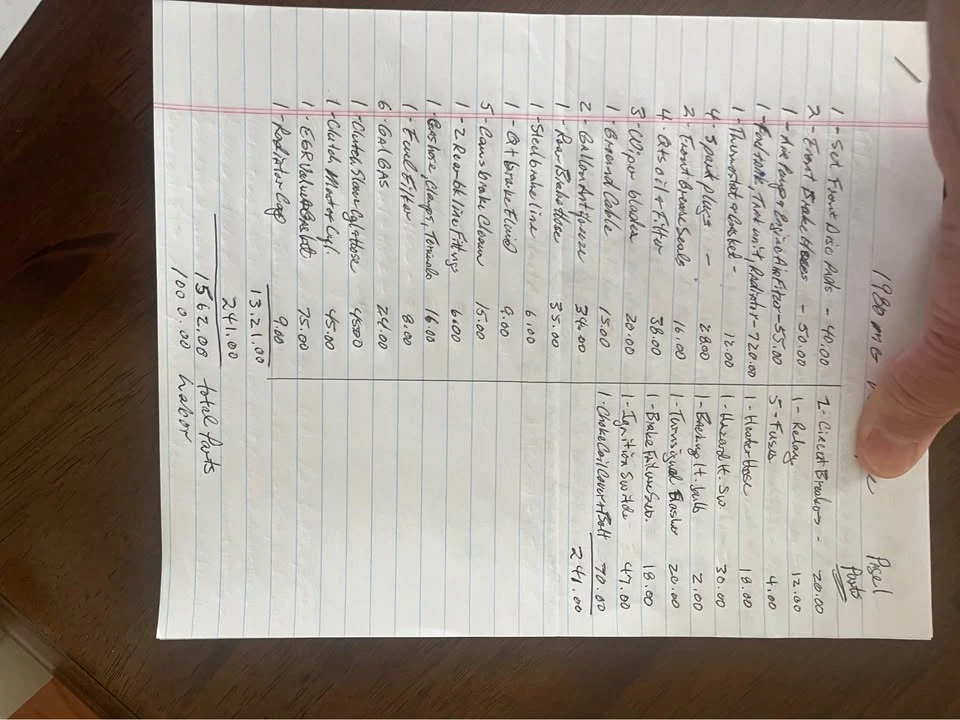 1980 MG
Page 1
Parts
1 - Set Front Disc Pads - 40.00
2 - Front Brake Hoses - 50.00
1 - Air Pump & Engine Air Filter - 55.00
1 - Fuel tank, Tank unit, Radiator - 720.00
1 - Thermostat & Gasket - 12.00
4 Spark plugs - 28.00
2 - Front Grease Seals 16.00
4. Qts oil + Filter 38.00
3 - Wiper blades 20.00
1 - Ground Cable 15.00
2 - Gallon Antifreeze 34.00
1 - Rear Brake Hose 35.00
1 - Steel brake line 6.00
1 - Qt brake Fluid 9.00
5 - Cans brake Clean 15.00
1 - 2 Rear bk line Fittings 6.00
1. Gas hose, Clamps, Terminals 16.00
1 - Fuel Filter 8.00
6. GAL GAS 24.00
1 - Clutch Slave Cyl + Hose 45.00
1 - Clutch Master Cyl. 45.00
1 - EGR Valve & Gasket 75.00
1 - Radiator Cap 9.00
13.21.00
241.00
1562.00 total Parts
1000.00 Labor
2 - Circuit Breakers - 20.00
1 - Relay 12.00
5 - Fuses 4.00
1 - Heater Hose 18.00
1 - Hazard lt. Sw. 30.00
1 - Backing lt. bulb 2.00
1 - Turnsignal Flasher 20.00
1 - Brake Failure Sw. 18.00
1 - Ignition Switch 47.00
1 - Choke Coil Cover + Bolt 70.00
241.00